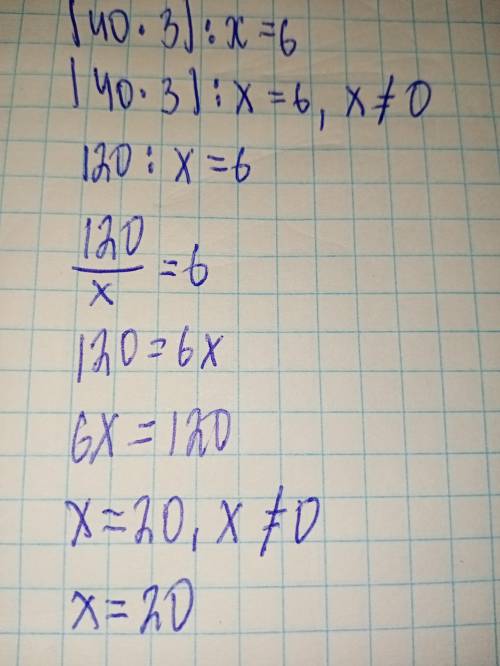 (40·3):x=6
(40·3):x=6, x≠0
120:x=6
120/x=6
120=6x
6x=120
x=20, x≠0
x=20